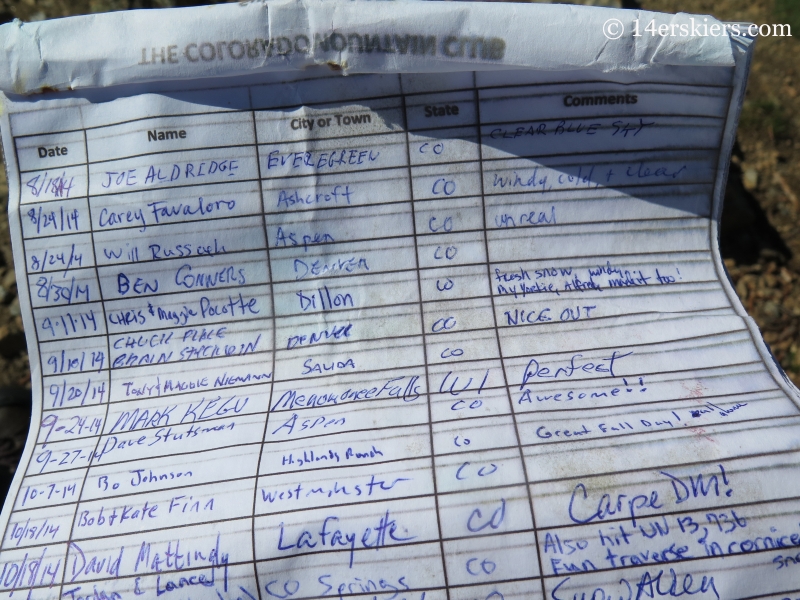 © 14erskiers.com
THE COLORADO MOUNTAIN CLUB
Date Name City or Town State Comments
8/18/14 JOE ALDRIDGE EVEREGREEN CO CLEAR BLUE SKY
8/24/14 Carey Favaloro Ashcroft CO windy, cold, + clear
8/24/14 Will Russach Aspen CO unreal
8/30/14 BEN CONNERS DENVER CO
9.11.14 CHRIS & Maggie Pacotte Dillon CO Fresh snow, windy
My Yorkie, made it too!
9/18/14 CHUCK DENVER CO NICE OUT
BRAIN
9/20/14 TONY & MAGGIE NIEMANN SALIDA CO
9-24-14 MARK KEGU Menomonee Falls WI perfect
9-27-14 Dave Stutsman ASPEN CO Awesome!!
10-7-14 Bo Johnson Highlands Ranch CO Great Fall Day!
10/18/14 Bob & Kate Finn Westminster CO
10/18/14 David Mattingly Lafayette CO Carpe DM!
Jordan & Lance CO Springs CO Also hit UN 13,736
Fun traverse in cornice